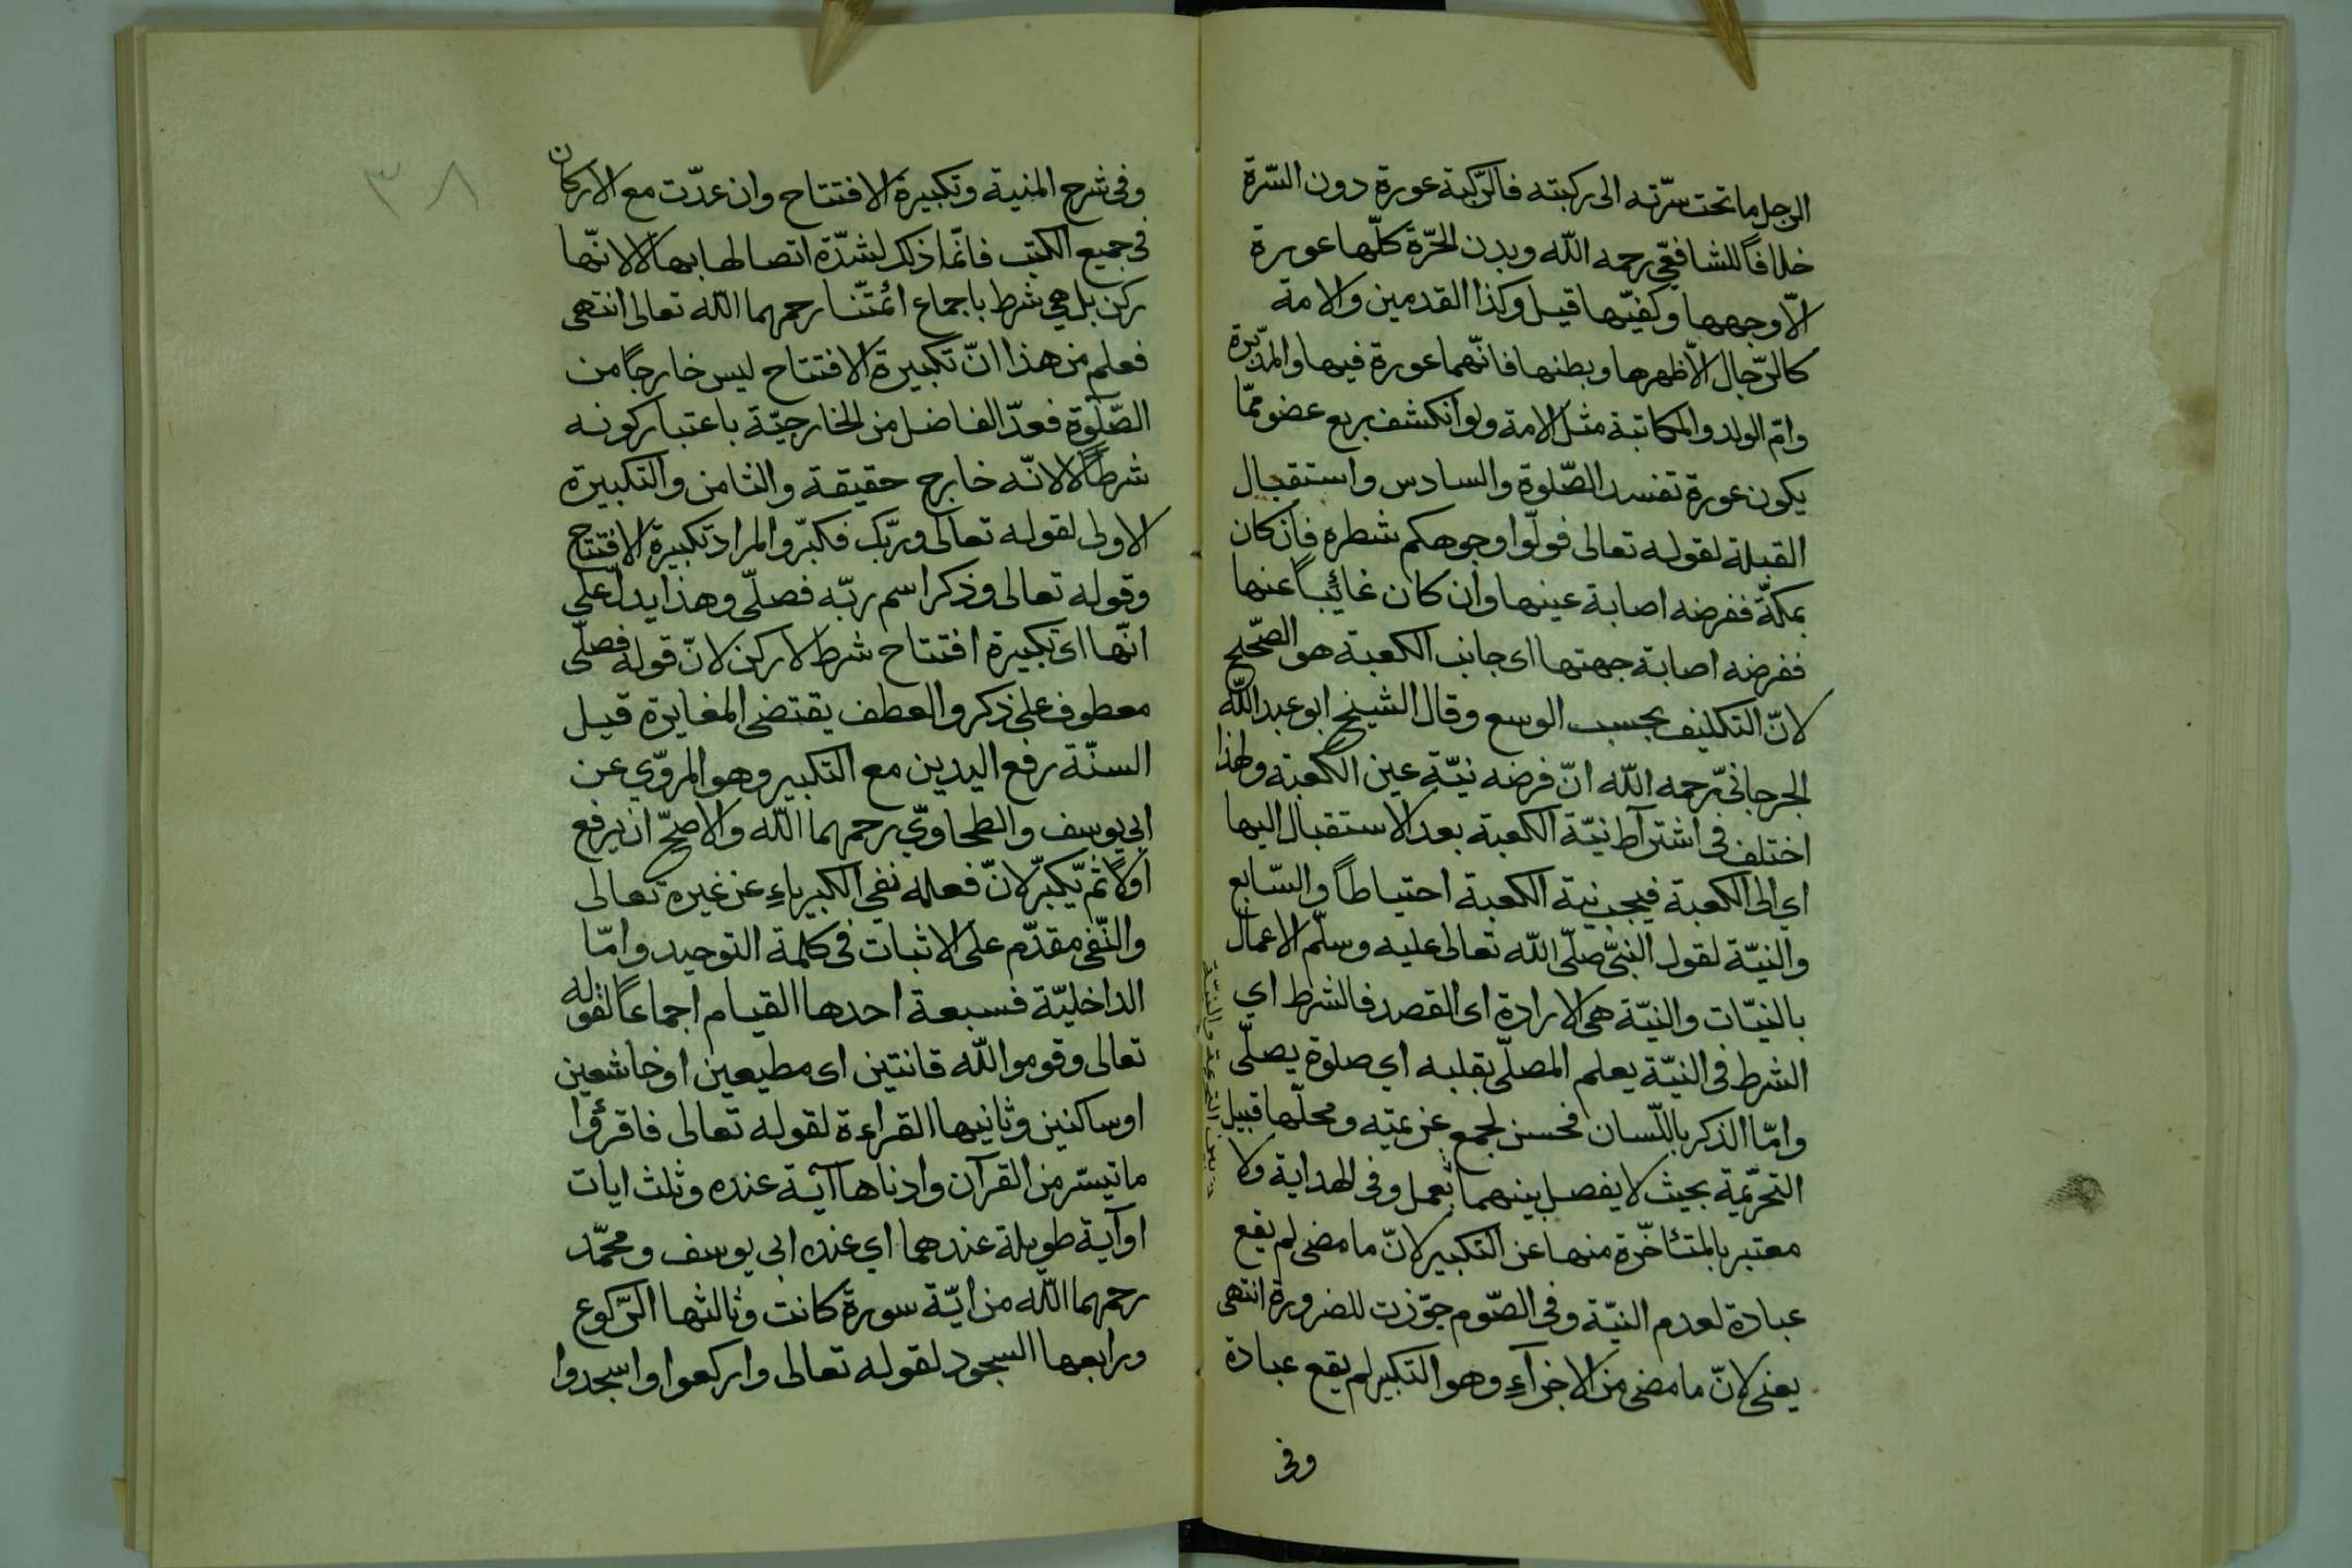 الرجل ما تحت سرّته الى ركبته فالرّكبة عورة دون السّرة
خلافًا للشافعيّ رحمه اللّه وبدن الحرّة كلّها عورة
الاّ وجهها وكفيّها قيل وكذا القدمين والامة
كالرّجال الاّ ظهرها وبطنها فانّهما عورة فيها والمدبّرة
وامّ الولد والمكاتبة مثل الامة ولو انكشف ربع عضو ممّا
يكون عورة تفسد الصّلوة والسادس واستقبال
القبلة لقوله تعالى فولّوا وجوهكم شطره فان كان
بمكّة ففرضه اصابة عينها وان كان غائبًا عنها
ففرضه اصابة جهتها اى جانب الكعبة هو الصّحيح
لانّ التكليف بحسب الوسع وقال الشيخ ابو عبد اللّه
الجرجانيّ رحمه اللّه انّ فرضه نيّة عين الكعبة ولهذا
اختلف فى اشتراط نيّة الكعبة بعد الاستقبال اليها
اي الى الكعبة فيجب نية الكعبة احتياطًا والسّابع
والنيّة لقول النبّى صلّى اللّه تعالى عليه وسلّم الاعمال
بالنيّات والنيّة هى الارادة اى القصد فالشرط اي
الشرط فى النيّة يعلم المصلّى بقلبه اي صلوة يصلّى
وامّا الذكر باللّسان فحسن لجمع عزيمته ومحلّها قبيل
التحرّيمة بحيث لا يفصل بينهما بعمل وفى الهداية ولا
معتبر بالمتئاخّرة منها عن التكبير لانّ ما مضى لم يقع
عبادة لعدم النيّة وفى الصّوم جوّزت للضرورة انتهى
يعنى لانّ ما مضى من الاجزآءِ وهو التكبير لم يقع عبادة
وفى
٣٨
وفى شرح المنية وتكبيرة الافتتاح وان عدّت مع الاركان
فى جميع الكتب فانّما ذلك لشدّة اتصالها بها لا لانّها
ركن بل هي شرط باجماع ائمّتنا رحمهما اللّه تعالى انتهى
فعلم من هذا انّ تكبيرة الافتتاح ليس خارجًا من
الصّلوة فعدّ الفاضل من الخارجيّة باعتبار كونه
شرطًا لا لانّه خارج حقيقة والثامن والتكبيرة
الاولى لقوله تعالى وربّك فكبّر والمراد تكبيرة الافتتاح
وقوله تعالى وذكر اسم ربّه فصلّى وهذا يدلّ على
انّها اى تكبيرة افتتاح شرط لا ركن لانّ قوله فصلّى
معطوف على ذكر والعطف يقتضى المغايرة قيل
السنّة رفع اليدين مع التكبير وهو المرويّ عن
ابي يوسف والطحاويّ رحمهما اللّه والاصحّ ان يرفع
اوّلًا ثمّ يكبّر لانّ فعله نفي الكبرياءِ عن غيره تعالى
والنّفى مقدّم على الاثبات فى كلمة التوحيد وامّا
الداخليّة فسبعة احدها القيام اجماعًا لقوله
تعالى وقوموا للّه قانتين اى مطيعين او خاشعين
او ساكنين وثانيها القراءة لقوله تعالى فاقرؤا
ما تيسّر من القرآن وادناها آية عنده وثلث ايات
او آية طويلة عندهما اي عند ابى يوسف ومحمّد
رحمهما اللّه من ايّة سورة كانت وثالثها الرّكوع
ورابعها السجود لقوله تعالى واركعوا واسجدوا